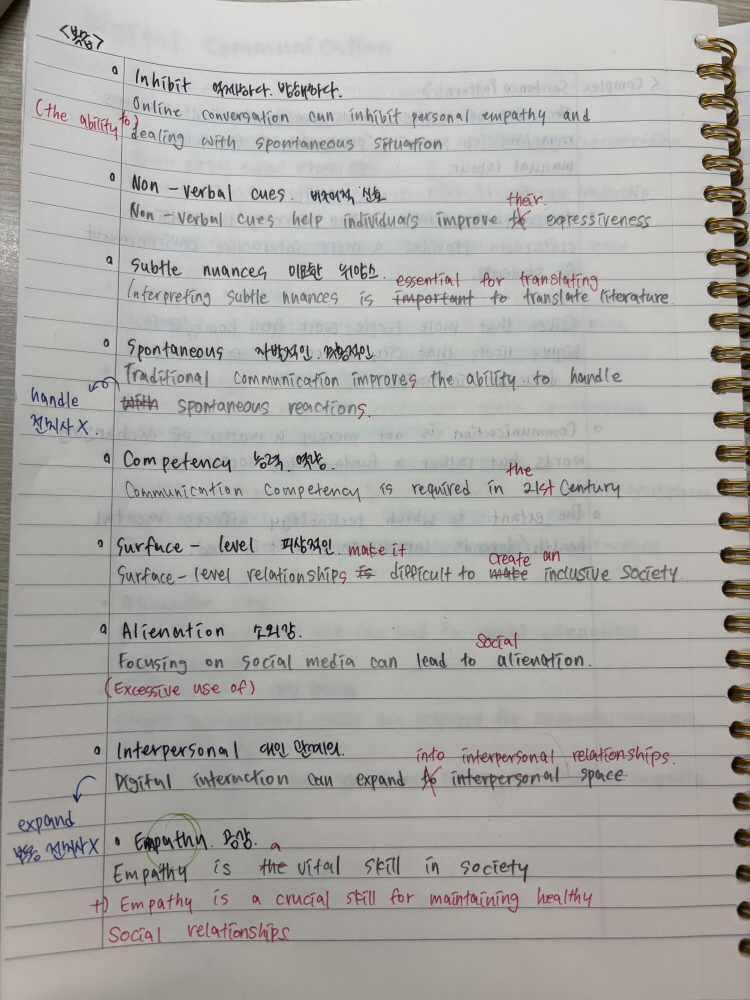 <복습>
o Inhibit 억제하다. 방해하다.
Online conversation can inhibit personal empathy and
(the ability to)
dealing with spontaneous situation
o Non-verbal cues. 비언어적 신호
their.
Non-verbal cues help individuals improve to expressiveness
o Subtle nuances 미묘한 뉘앙스.
essential for translating
Interpreting subtle nuances is important to translate literature.
o Spontaneous 자발적인. 즉흥적인
Traditional communication improves the ability to handle
handle
전치사 X.
with spontaneous reactions.
o Competency 능력. 역량.
the
Communication competency is required in 21st Century
o Surface-level 피상적인.
make it create an
Surface-level relationships is difficult to make inclusive society.
o Alienation 소외감.
social
Focusing on social media can lead to alienation.
(Excessive use of)
o Interpersonal 대인 관계의.
into interpersonal relationships.
Digital interaction can expand to interpersonal space
expand
전치사 X
• Empathy. 공감.
a
Empathy is the vital skill in society
+) Empathy is a crucial skill for maintaining healthy
social relationships.